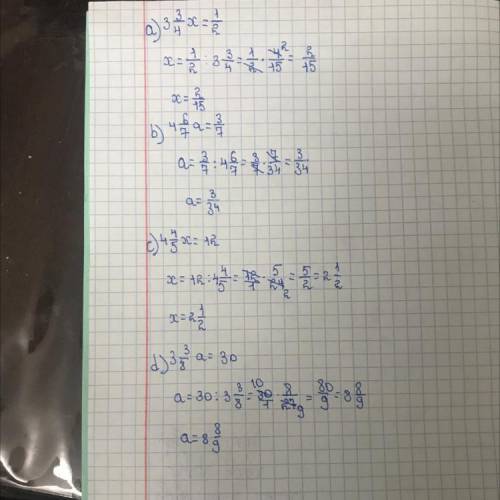 a) 3 3/4 x = 1/2
x = 1/2 : 3 3/4 = 1/2 · 4/15 2 = 2/15
x = 2/15
b) 4 6/7 a = 3/7
a = 3/7 : 4 6/7 = 3/7 · 7/34 = 3/34
a = 3/34
c) 4 4/5 x = 12
x = 12 : 4 4/5 = 12/1 · 5/24 2 = 5/2 = 2 1/2
x = 2 1/2
d) 3 3/8 a = 30
a = 30 : 3 3/8 = 10 30/1 · 8/27 9 = 80/9 = 8 8/9
a = 8 8/9